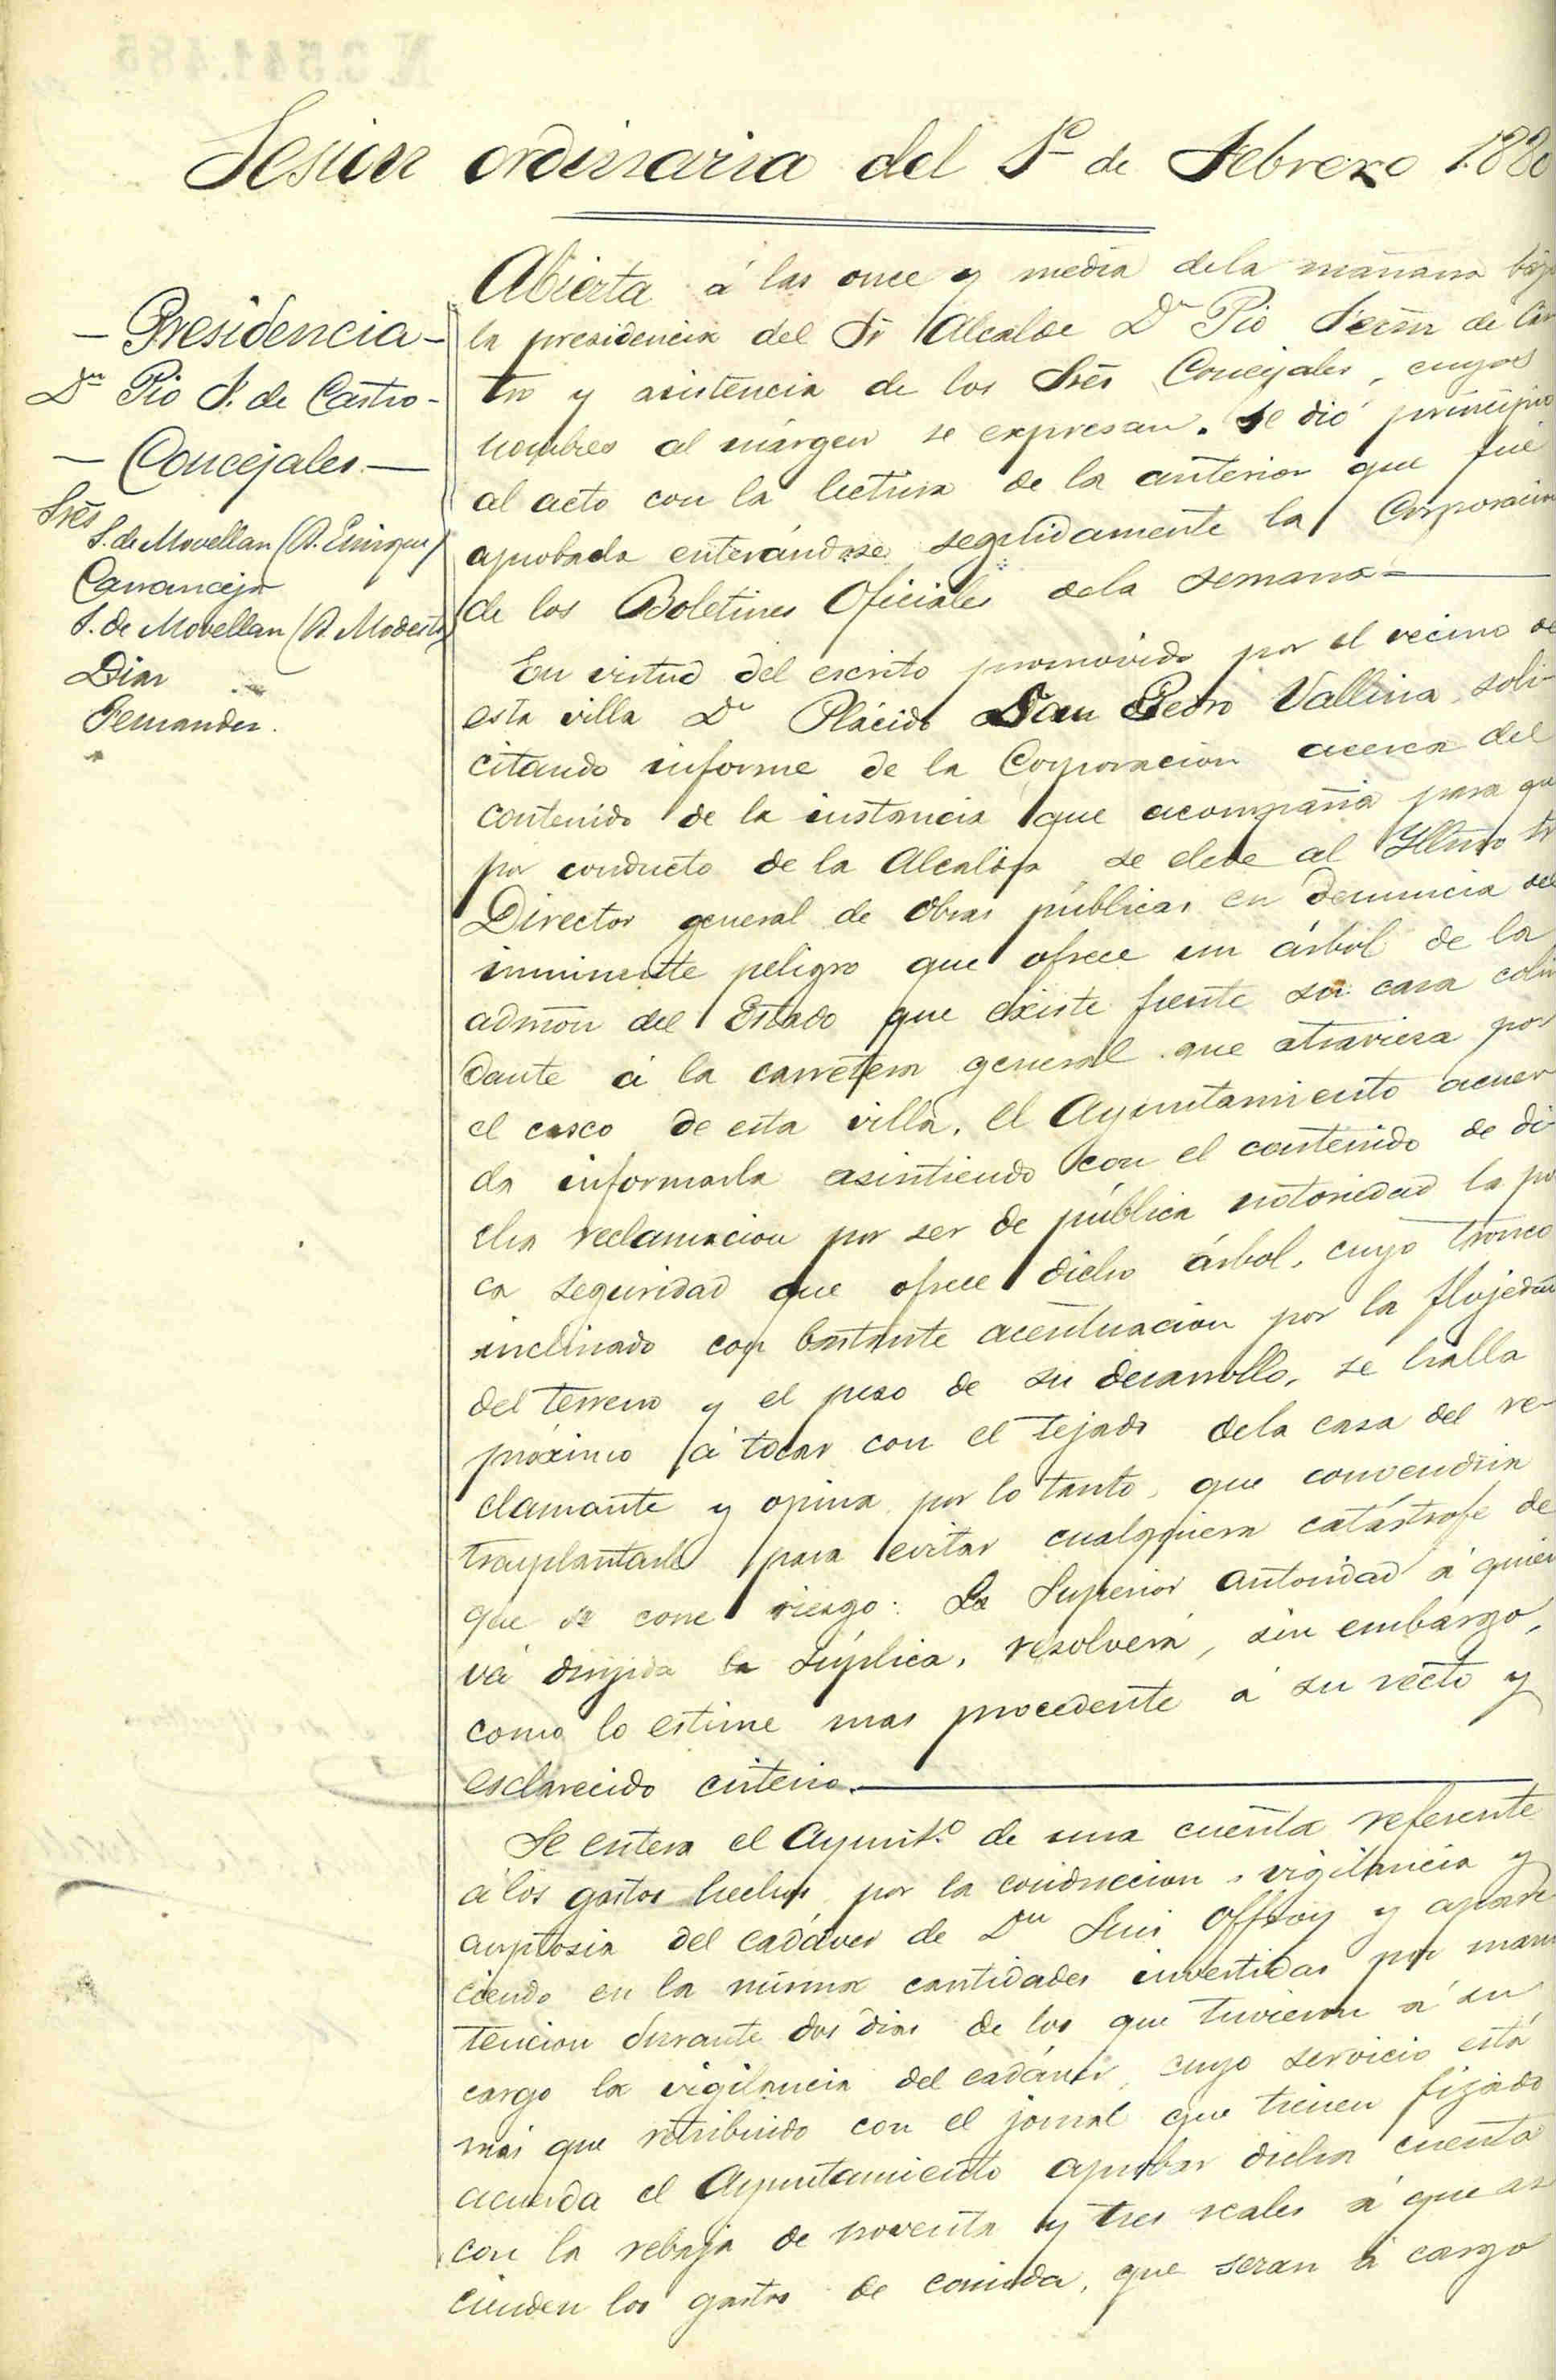 Sesion ordinaria del 1º de Febrero 1880
— Presidencia —
Dn Pio S. de Castro —
— Concejales —
Srēs
S. de Movellan (D. Enrique)
Carranceja
S. de Movellan (D. Modesto)
Diaz
Fernandez.
Abierta á las once y media dela mañana bajo
la presidencia del Sr Alcalde Dn Pio de Cas
tro y asistencia de los Srēs Concejales, cuyos
nombres al márgen se expresan. Se dió principio
al acto con la lectura de la anterior que fué
aprobada enterándose seguidamente la Corporacion
de los Boletines Oficiales dela semana =
En virtud del escrito promovido por el vecino de
esta villa Dn Plácido San Pedro Vallina, soli-
citando informe de la Corporacion acerca del
contenido de la instancia que acompaña para que
por conducto de la Alcaldia se eleve al Illmo Sr
Director general de obras públicas en denuncia del
inminente peligro que ofrece un árbol de la
admōn del Estado que existe frente su casa colin
dante á la carretera general que atraviesa por
el casco de esta villa, el Ayuntamiento acuer
da informarla asintiendo con el contenido de di-
cha reclamacion por ser de pública notoriedad la po
ca seguridad que ofrece dicho árbol, cuyo tronco
inclinado con bastante acentuacion por la flojedad
del terreno y el peso de su desarrollo, se halla
próximo á tocar con el tejado dela casa del re-
clamante y opina por lo tanto, que convendria
trasplantarle para evitar cualquiera catástrofe de
que se corre riesgo: La Superior autoridad á quien
vá dirijida la súplica, resolverá, sin embargo,
como lo estime mas procedente á su recto y
esclarecido criterio.
Se entera el Ayunt.o de una cuenta referente
á los gastos hechos por la conduccion, vigilancia y
autosia del cadáver de Dn Luis Offroy y apare
ciendo en la misma cantidades invertidas por manu
tencion durante dos dias de los que tuvieron á su
cargo la vigilancia del cadáver, cuyo servicio está
más que retribuido con el jornal que tienen fijado
acuerda el Ayuntamiento aprobar dicha cuenta
con la rebaja de noventa y tres reales á que as
cienden los gastos de comida, que seran á cargo